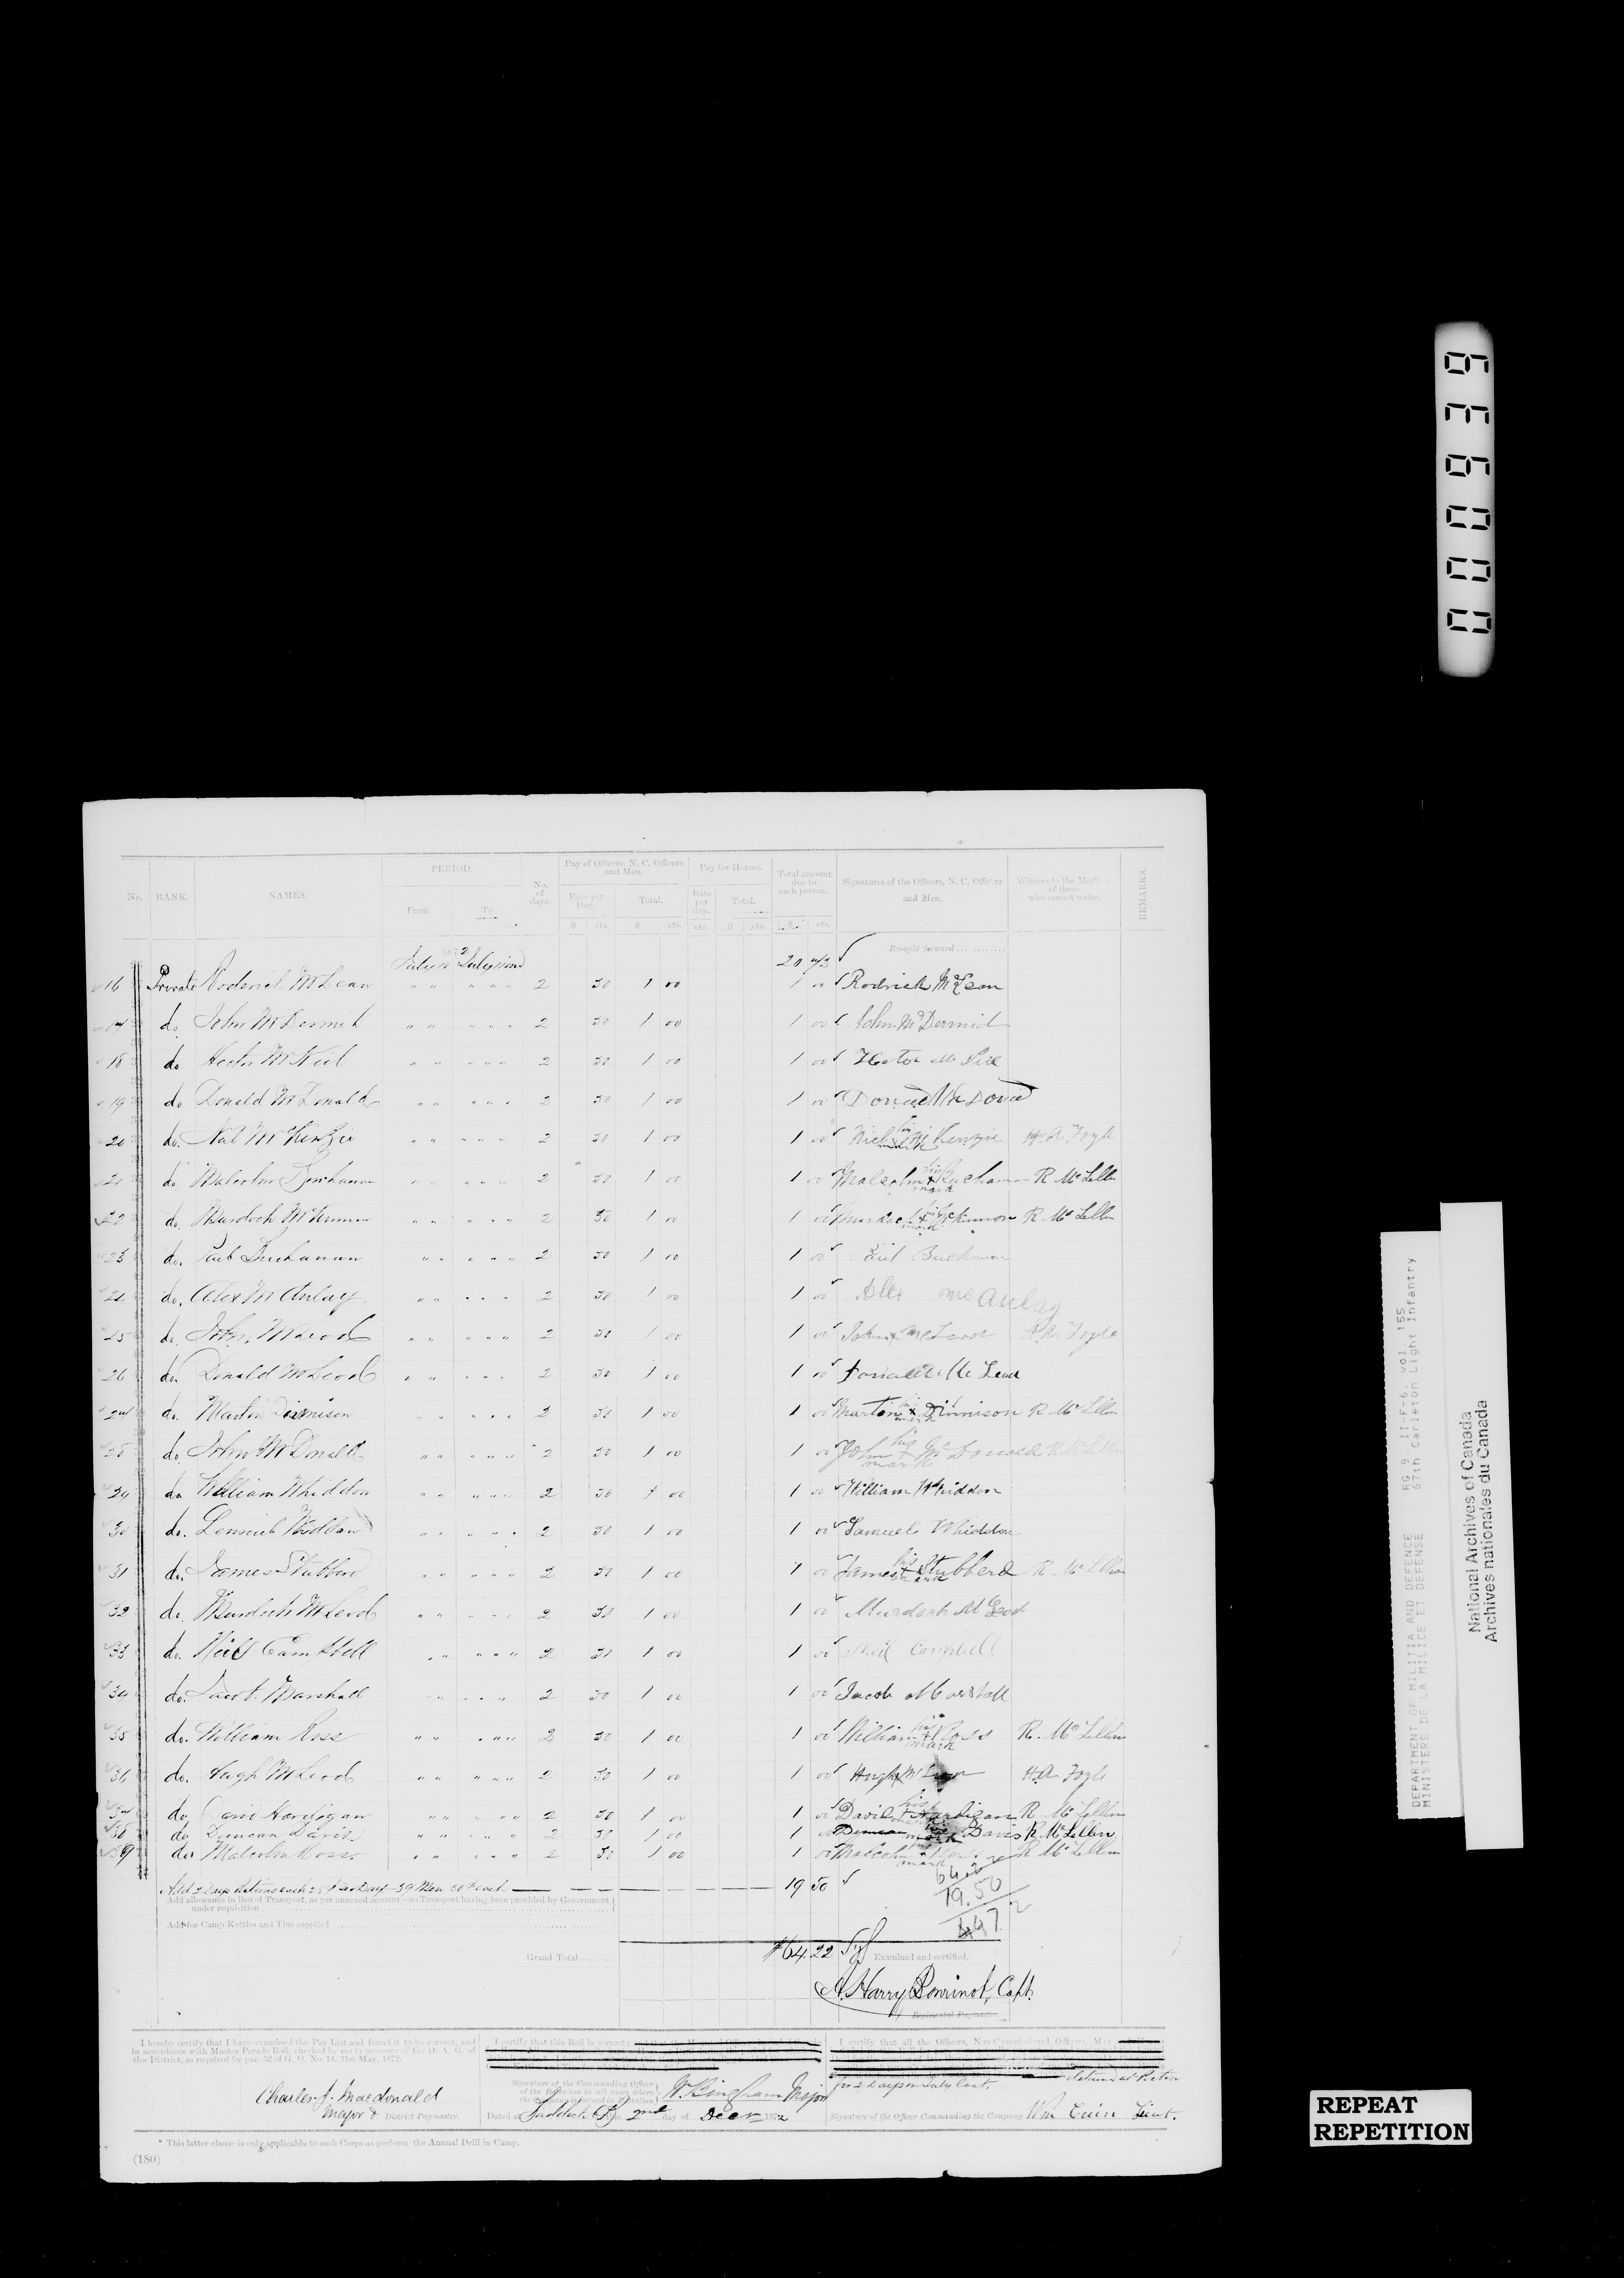 No. RANK. NAMES. PERIOD. From To No. of days. Pay of Officers, N. C. Officers and Men. Rate per Day. Total. Pay for Horses. Rate per day. Total. Total amount due to each person. Signatures of the Officers, N. C. Officers and Men. Witness to the Mark of those who cannot write. REMARKS.
$ cts. $ cts. cts. $ cts. $ cts.
1872 Brought forward
July July 20
16 Private Roderick McLean " " " " " 2 50 1 00 1 00 Rodrick McLean
17 do John McDermid " " " " " 2 50 1 00 1 00 John McDermid
18 do Hector McNeil " " " " " 2 50 1 00 1 00 Hector Mc Neil
19 do Donald McDonald " " " " " 2 50 1 00 1 00 Donald
20 do. McKenzie " " " " " 2 50 1 00 1 00 his mark Kenzie H. A. Fogle
21 do Malcolm Buchanan " " " " " 2 50 1 00 1 00 Malcolm his x mark Buchanan R McLellan
22 do. Murdoch McKinnon " " " " " 2 50 1 00 1 00 his x mark McKinnon R McLellan
23 do. Buchanan " " " " " 2 50 1 00 1 00 Buchanan
24 do. Alex McAulay " " " " " 2 50 1 00 1 00 Alex mc Aulay
25 do. John McLeod " " " " " 2 50 1 00 1 00 John x McLeod H A Fogle
26 do. Donald McLeod " " " " " 2 50 1 00 1 00 Mc Leod
27 do. Martin Dinnison " " " " " 2 50 1 00 1 00 Martin his x mark Dinnison R McLellan
28 do. John McDonald " " " " " 2 50 1 00 1 00 John his x mark McDonald R McLellan
29 do William Whiddon " " " " " 2 50 1 00 1 00 William Whiddon
30 do. Whiddon " " " " " 2 50 1 00 1 00 Whiddon
31 do. James Stubbard " " " " " 2 50 1 00 1 00 James his x mark Stubberd R McLellan
32 do. Murdoch McLeod " " " " " 2 50 1 00 1 00 Murdoch McLeod
33 do. Neil Campbell " " " " " 2 50 1 00 1 00 Neil Campbell
34 do. Jacob Marshall " " " " " 2 50 1 00 1 00 Jacob Marshall
35 do. William Ross " " " " " 2 50 1 00 1 00 William his x mark Ross R. McLellan
36 do. Hugh McLeod " " " " " 2 50 1 00 1 00 Hugh x H.A. Fogle
37 do. David Hardigan " " " " " 2 50 1 00 1 00 David his x mark Hardigan R McLellan
38 do Duncan Davis " " " " " 2 50 1 00 1 00 Duncan his x mark Davis R. McLellan
39 do. Malcolm Ross " " " " " 2 50 1 00 1 00 Malcolm his x mark Ross R McLellan
Add 2 Days Rations each 25¢ per Day—39 Men 50¢ each 19 50
Add allowance in lieu of Transport, as per annexed account—no Transport having been provided by Government under requisition
19.50
Add for Camp Kettles and Tins supplied
Grand Total $64.22 Examined and certified.
A. Harry Bourinot, Capt.
Regimental Paymaster.
I hereby certify that I have examined the Pay List and found it to be correct, and in accordance with Muster Parade Roll, checked by me in presence of the D. A. G. of this District, as required by par. 52 of G. O. No. 14, 31st May, 1872.
Charles J. Macdonald
Major & District Paymaster.
I certify that this Roll is correct;
Signature of the Commanding Officer of the Battalion in all cases where
W. Bingham Major
Dated at 2nd day of Decr 1872
I certify that all the Officers, Non-Commissioned Officers, Men
for 2 days in July last.
Signature of the Officer Commanding the Company Wm Lieut.
* This latter clause is only applicable to such Corps as perform the Annual Drill in Camp.
(180)
DEPARTMENT OF MILITIA AND DEFENCE RG 9, II-F-6, vol 155
MINISTERE DE LA MILICE ET DEFENSE 67th Carleton Light Infantry
National Archives of Canada
Archives nationales du Canada
REPEAT
REPETITION